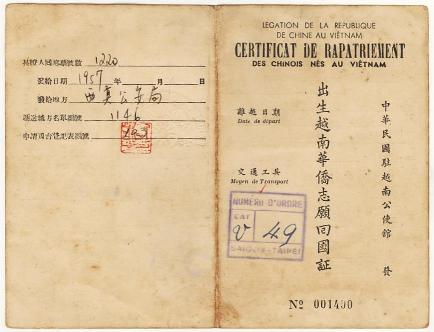 LEGATION DE LA REPUBLIQUE
DE CHINE AU VIÊTNAM
CERTIFICAT DE RAPATRIEMENT
DES CHINOIS NÉS AU VIÊTNAM
中華民國駐越南公使館 發
出生越南華僑志願回國証
離越日期
Date de départ
交通工具
Moyen de Transport
NUMERO D'ORDRE
CAT
V 49
SAIGON-TAIPEI
Nº 001490
1220
發給日期 1957 年 月 日
發給地方 公安局
1146